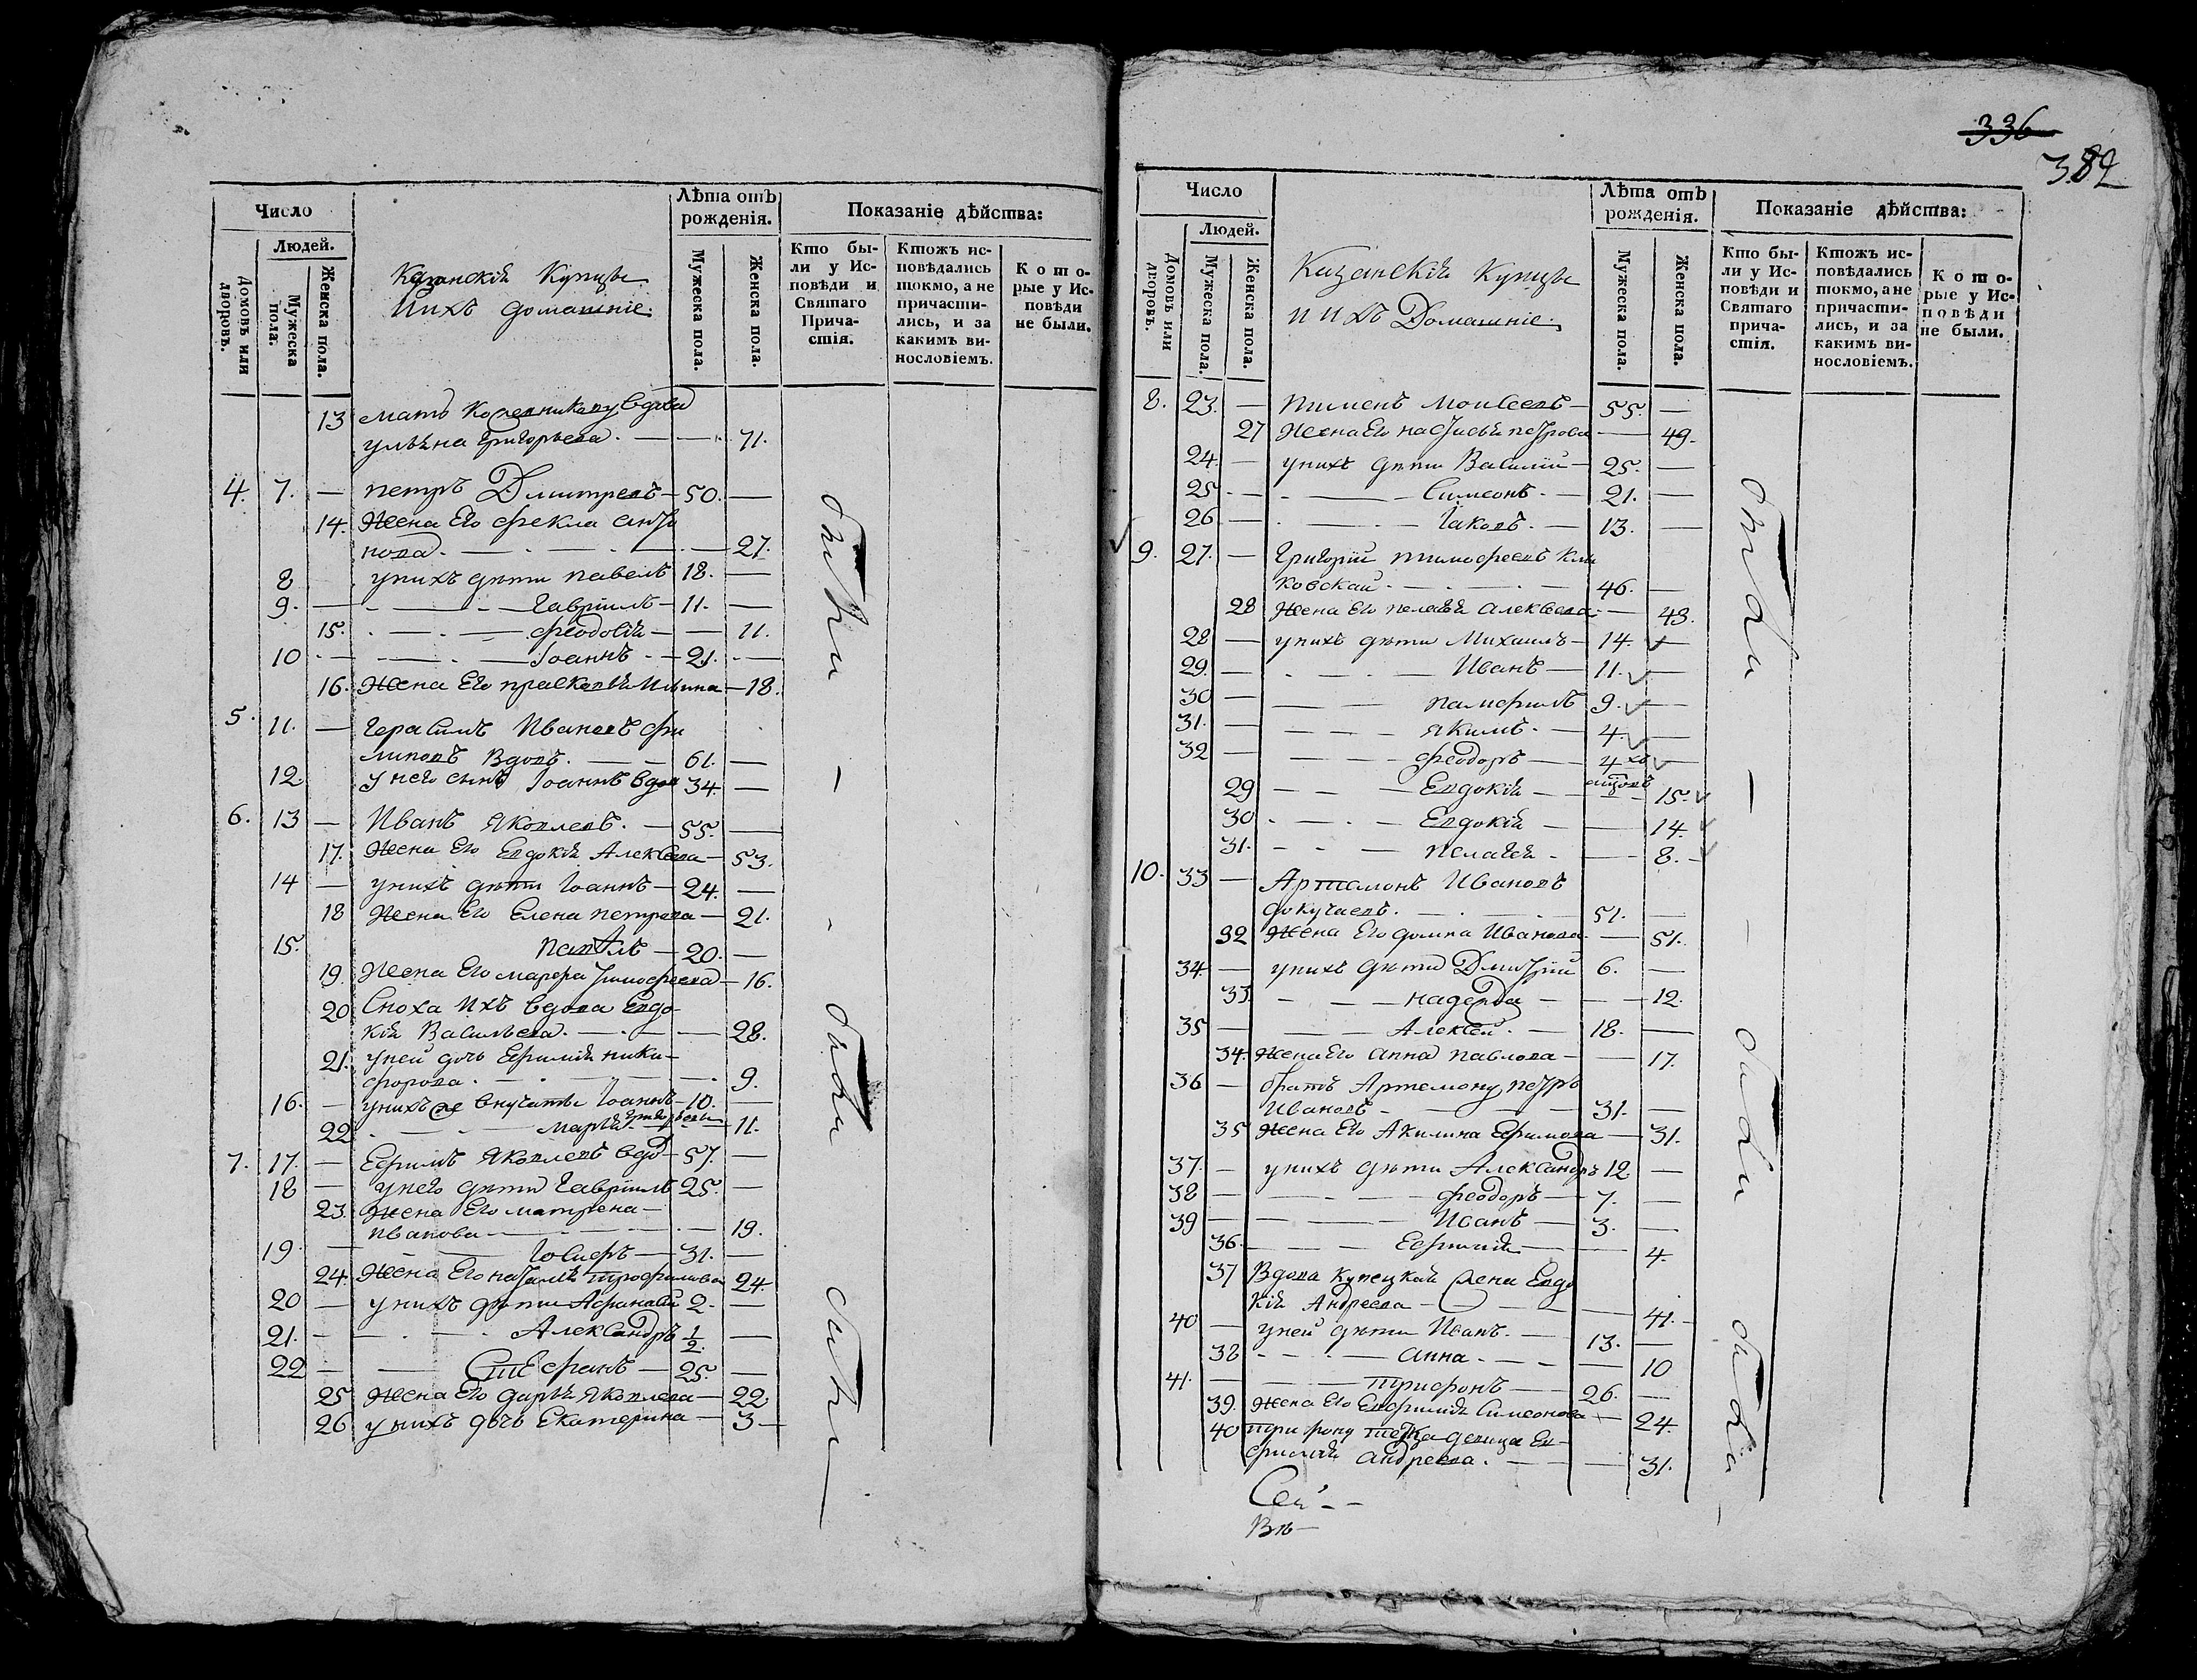 336
382
Число
Людей.
Домовъ или дворовъ.
Мужеска пола.
Женска пола.
Казанскія Купцы
И ихъ домашніе.
Лѣта отъ рожденія.
Мужеска пола.
Женска пола.
Показаніе дѣйства:
Кто были у Исповѣди и Святаго Причастія.
Ктожъ исповѣдались токмо, а не причастились, и за какимъ винословіемъ.
Которые у Исповѣди не были.
13 мать вдова
ульяна Григорьева. — 71.
4. 7. — петръ Дмитревъ — 50. —
14. Жена Его фекла
нова. — 27.
8 у нихъ дѣти павелъ 18. —
9. — Гавріилъ — 11. —
15. — феодосія — — 11.
10 — Іоаннъ — 21. —
16. Жена Его прасковья Ильина — 18.
5. 11. — Герасимъ Ивановъ фи
липовъ Вдовъ. — 61. —
12. у него сынъ Іоаннъ вдов 34. —
6. 13 — Иванъ Яковлевъ. — 55. —
17. Жена Его Евдокія Алексеева — 53.
14 — у нихъ дѣти Іоаннъ — 24. —
18 Жена Его Елена петрова — 21.
15. павелъ — 20. —
19. Жена Его марфа тимофеева — 16.
20 Сноха ихъ вдова Евдо
кія Васильева. — 28.
21. у ней дочь Ефимія ники-
форова. — 9.
16. — у нихъ же внучата Іоаннъ — 10. —
22 — марья Григорьевы — 11.
7. 17. — Ефимъ Яковлевъ вдо — 57. —
18 — у него дѣти Гавріилъ 25. —
23. Жена Его матрена —
иванова — 19.
19. — Іосифъ — 31. —
24. Жена Его наталья трофимова 24.
20 — у нихъ дѣти Афанасій 2. —
21. — Александръ 1/2. —
22 — Стефанъ — 25. —
25 Жена Его дарья Яковлева — 22.
26 у нихъ дочь Екатерина — 3 —
были — были были
Число
Людей.
Домовъ или дворовъ.
Мужеска пола.
Женска пола.
Казанскія Купцы
и ихъ Домашніе.
Лѣта отъ рожденія.
Мужеска пола.
Женска пола.
Показаніе дѣйства:
Кто были у Исповѣди и Святаго причастія.
Ктожъ исповѣдались токмо, а не причастились, и за какимъ винословіемъ.
Которые у Исповѣди не были.
8. 23. — пименъ моисеевъ — 55. —
27 Жена Его настасья петрова — 49.
24. — у нихъ дѣти Василій — 25. —
25. — Симеонъ. — 21. —
26 — Іаковъ. — 13. —
9. 27. — Григорій тимофеевъ Кли
ковскай — 46. —
28 Жена Его пелагея Алексеева — 43.
28 — у нихъ дѣти Михаилъ — 14. —
29. — Иванъ — 11. —
30 — памфилъ 9. —
31. — Якимъ. — 4. —
32 — феодоръ — 4 хъ
29 — Евдокія — 15.
30 — Евдокія — 14.
31. — пелагея — 8.
10. 33 — Артамонъ Ивановъ
докучаевъ. — 51. —
32 Жена Его домна Иванова — 51.
34. — у нихъ дѣти Дмитрій 6. —
33. — надежда — — 12.
35 — Алексей. — 18. —
34. Жена Его анна павлова — 17.
36 — братъ Артемону петръ
Ивановъ — 31. —
35 Жена Его Акилина Ефимова — 31.
37. — у нихъ дѣти Александръ 12 —
38 — феодоръ — 7. —
39 — Иванъ — 3. —
36. — Ефимія — 4.
37 Вдова купецкая жена Евдо
кія Андреева — 41.
40 — у ней дѣти Иванъ. — 13. —
38 — анна — 10
41. — трифонъ — 26. —
39. Жена Его Евфимія Симеонова — 24.
40 трифону девица Ев-
фимія андреева. — 31.
были — — были были —